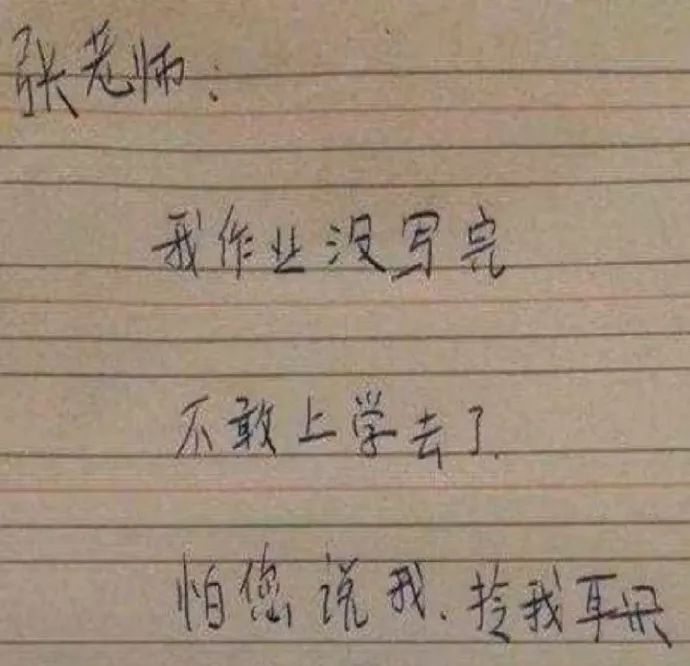 张老师：
我作业没写完
不敢上学去了.
怕您说我、拎我耳朵